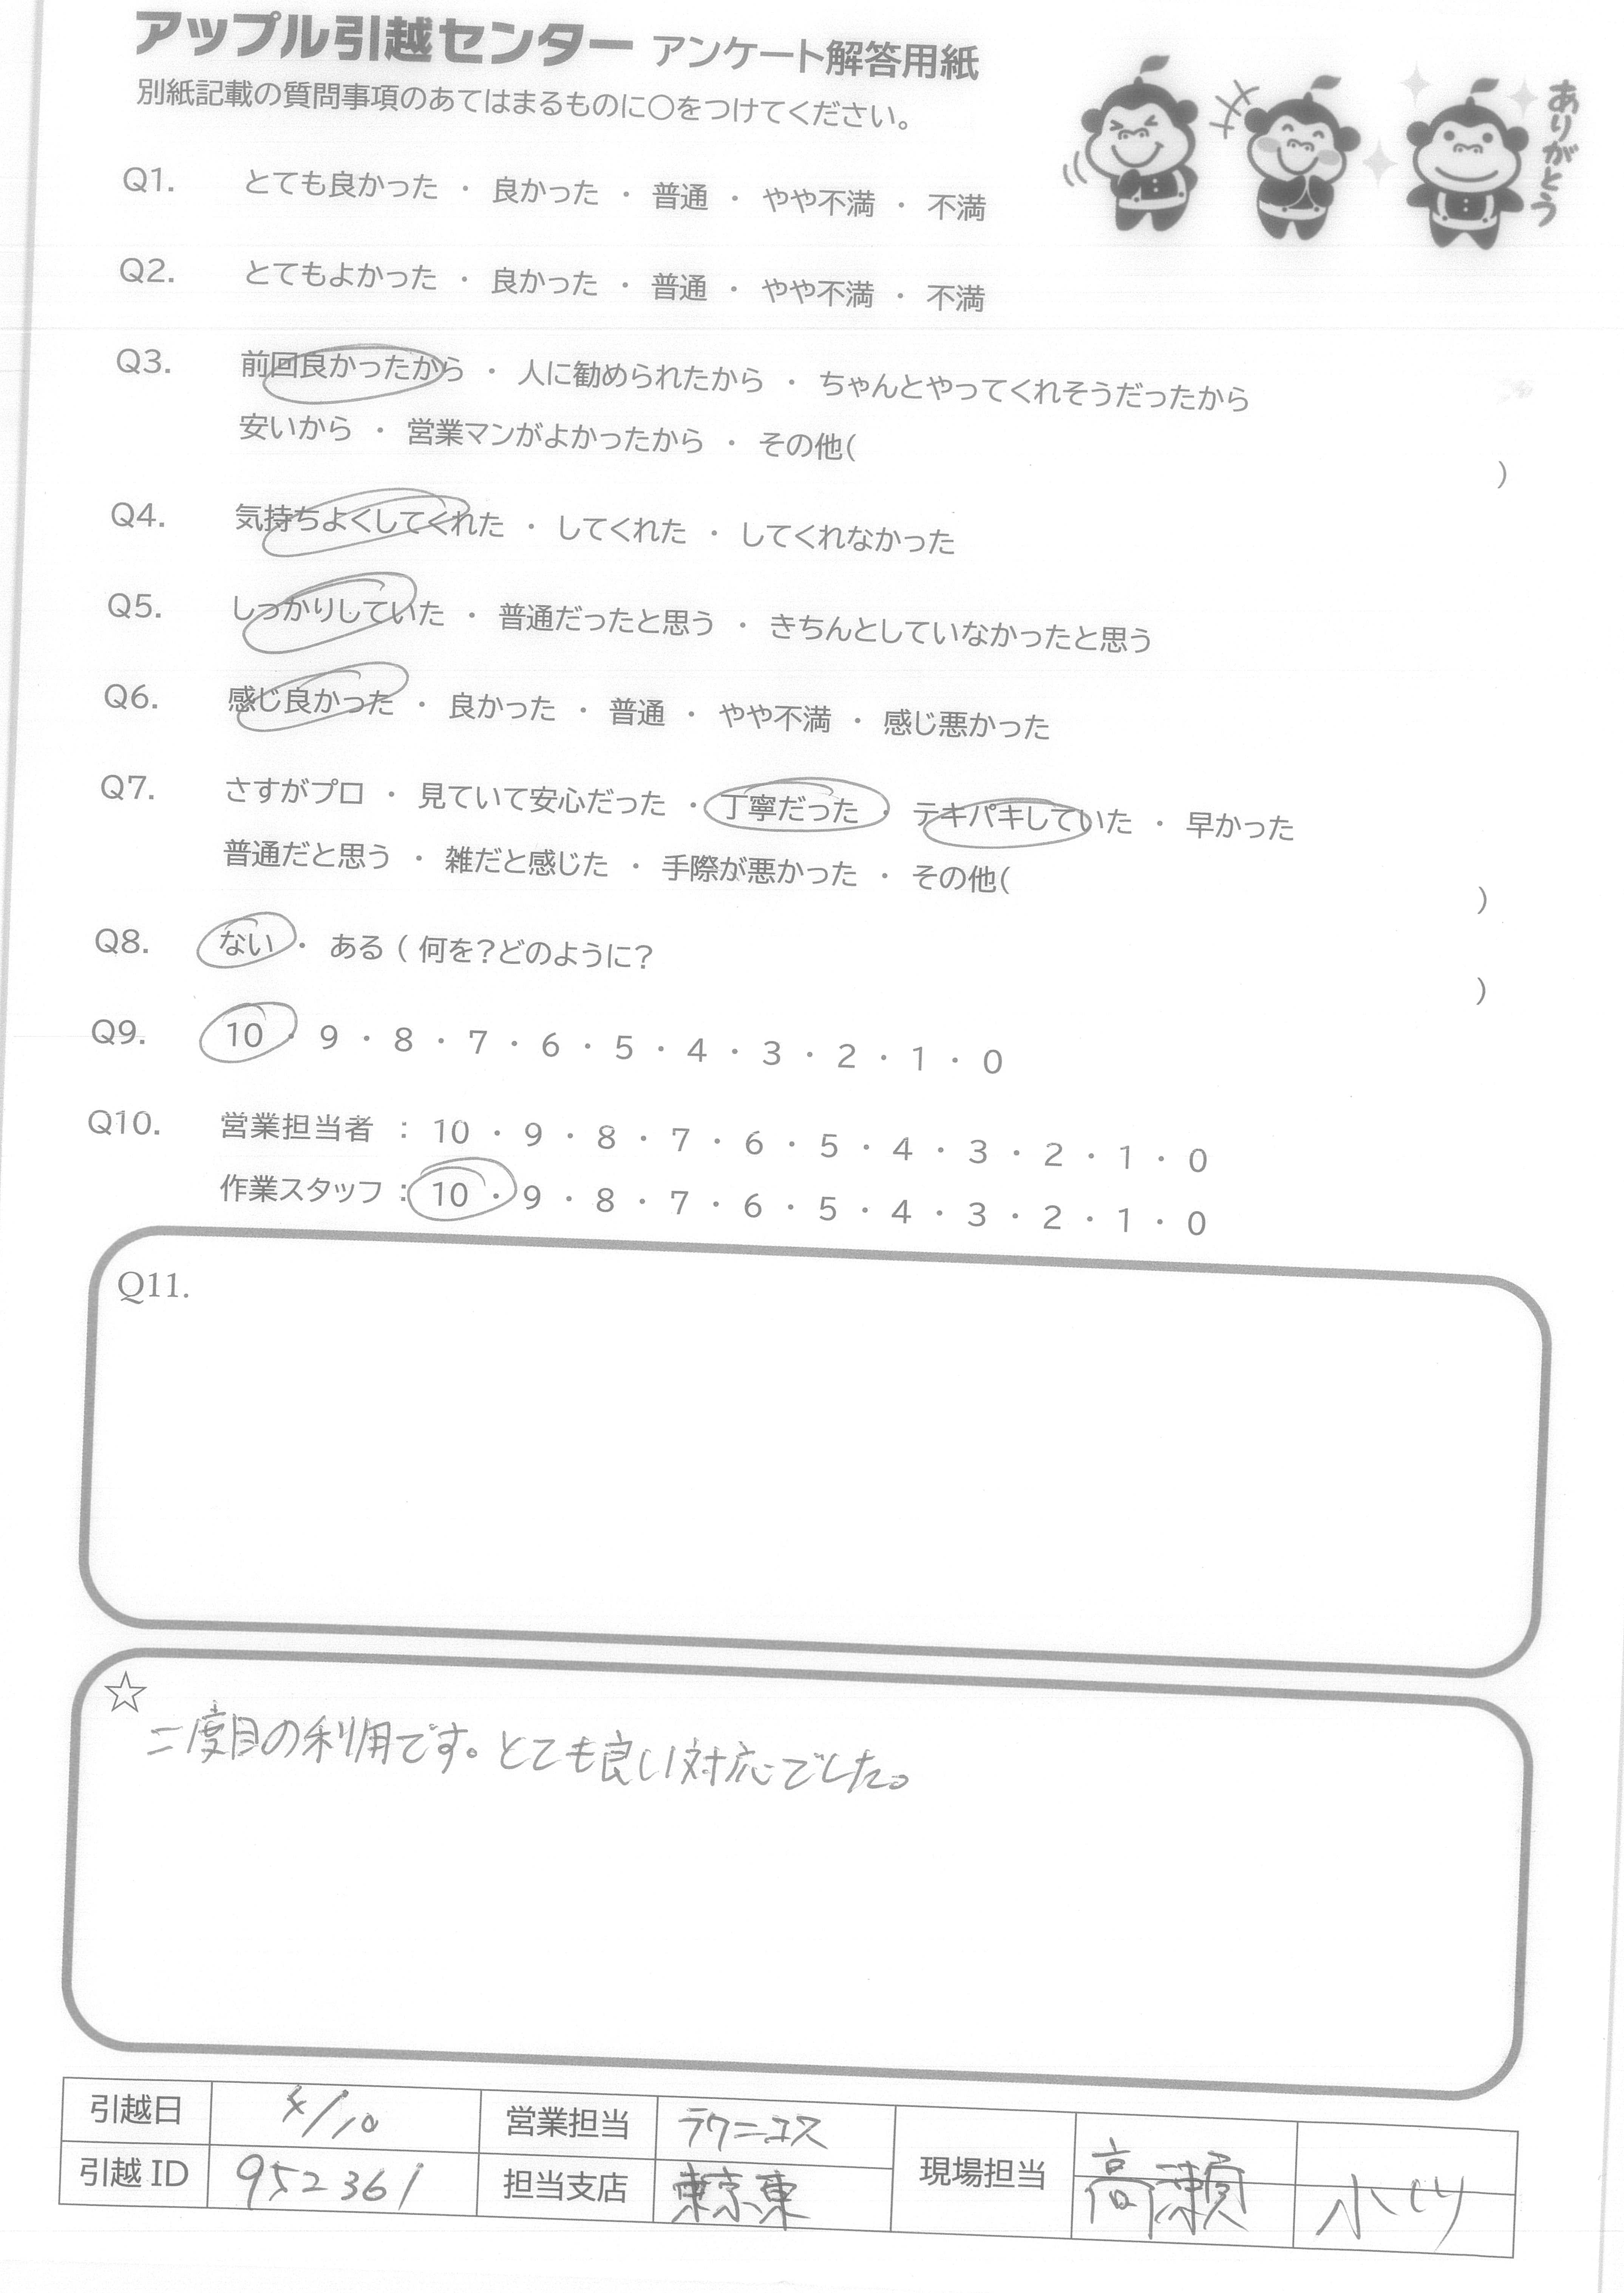 アップル引越センター アンケート解答用紙
別紙記載の質問事項のあてはまるものに〇をつけてください。
ありがとう
Q1. とても良かった ・ 良かった ・ 普通 ・ やや不満 ・ 不満
Q2. とてもよかった ・ 良かった ・ 普通 ・ やや不満 ・ 不満
Q3. 前回良かったから ・ 人に勧められたから ・ ちゃんとやってくれそうだったから
安いから ・ 営業マンがよかったから ・ その他( )
Q4. 気持ちよくしてくれた ・ してくれた ・ してくれなかった
Q5. しっかりしていた ・ 普通だったと思う ・ きちんとしていなかったと思う
Q6. 感じ良かった ・ 良かった ・ 普通 ・ やや不満 ・ 感じ悪かった
Q7. さすがプロ ・ 見ていて安心だった ・ 丁寧だった ・ テキパキしていた ・ 早かった
普通だと思う ・ 雑だと感じた ・ 手際が悪かった ・ その他( )
Q8. ない ・ ある ( 何を?どのように? )
Q9. 10 ・ 9 ・ 8 ・ 7 ・ 6 ・ 5 ・ 4 ・ 3 ・ 2 ・ 1 ・ 0
Q10. 営業担当者 : 10 ・ 9 ・ 8 ・ 7 ・ 6 ・ 5 ・ 4 ・ 3 ・ 2 ・ 1 ・ 0
作業スタッフ : 10 ・ 9 ・ 8 ・ 7 ・ 6 ・ 5 ・ 4 ・ 3 ・ 2 ・ 1 ・ 0
Q11.
☆
二度目の利用です。とても良い対応でした。
引越日 4/10 営業担当 ラクニコス 現場担当 高瀬 小川
引越 ID 952361 担当支店 東京東